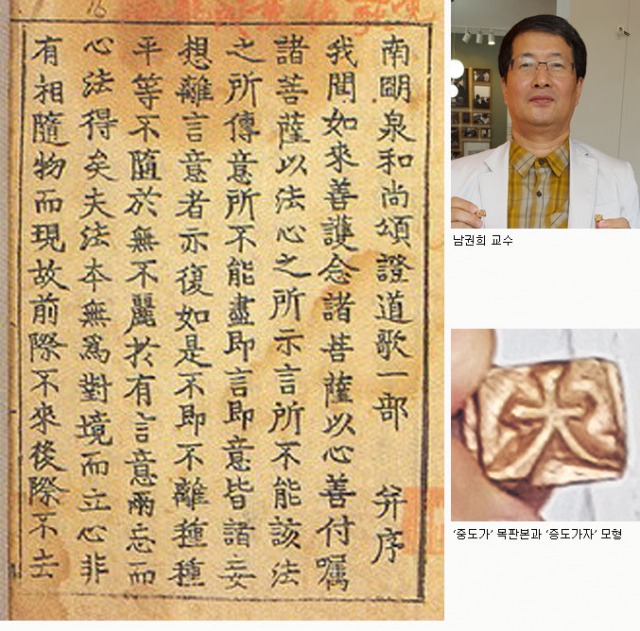 南明泉和尚頌證道歌一部 并序
我聞如來善護念諸菩薩以心善付囑
諸菩薩以法心之所示言所不能該法
之所傳意所不能盡即言即意皆諸妄
想離言意者亦復如是不即不離種種
平等不隨於無不麗於有言意兩忘而
心法得矣夫法本無爲對境而立心非
有相隨物而現故前際不來後際不去
남권희 교수
‘중도가’ 목판본과 ‘증도가자’ 모형